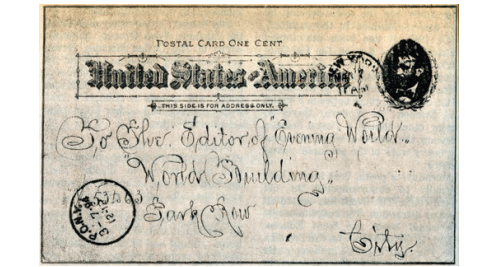 POSTAL CARD ONE CENT
United States of America
THIS SIDE IS FOR ADDRESS ONLY.
To The Editor of "Evening World"
World Building,
Park Row
City.